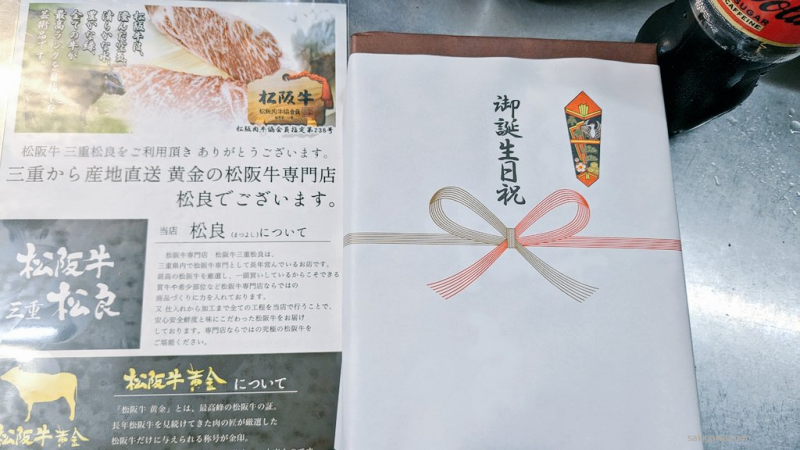 松阪牛は、
澄んだ空気、
清らかな水、
豊かな緑、
全ての牛が
芸術品です。
松阪牛
松阪肉牛協会会員
松阪肉牛協会員指定第238号
松阪牛 三重松良をご利用頂き ありがとうございます。
三重から産地直送 黄金の松阪牛専門店
松良でございます。
当店 松良(まつよし)について
松阪牛専門店 松阪牛三重松良は、
三重県内で松阪牛専門として長年営んでいるお店です。
最高の松阪牛を厳選し、一頭買いしているからこそできる
賞牛や希少部位など松阪牛専門店ならではの
商品づくりに力を入れております。
又 仕入れから加工まで全ての工程を当店で行うことで、
安心安全鮮度と味にこだわった松阪牛をお届け
しております。専門店ならではの究極の松阪牛を
ご堪能ください。
松阪牛
三重 松良
松阪牛黄金 について
「松阪牛 黄金」とは、最高峰の松阪牛の証。
長年松阪牛を見続けてきた肉の匠が厳選した
松阪牛だけに与えられる称号が金印。
松阪牛黄金
御誕生日祝
SUGAR
CAFFEINE